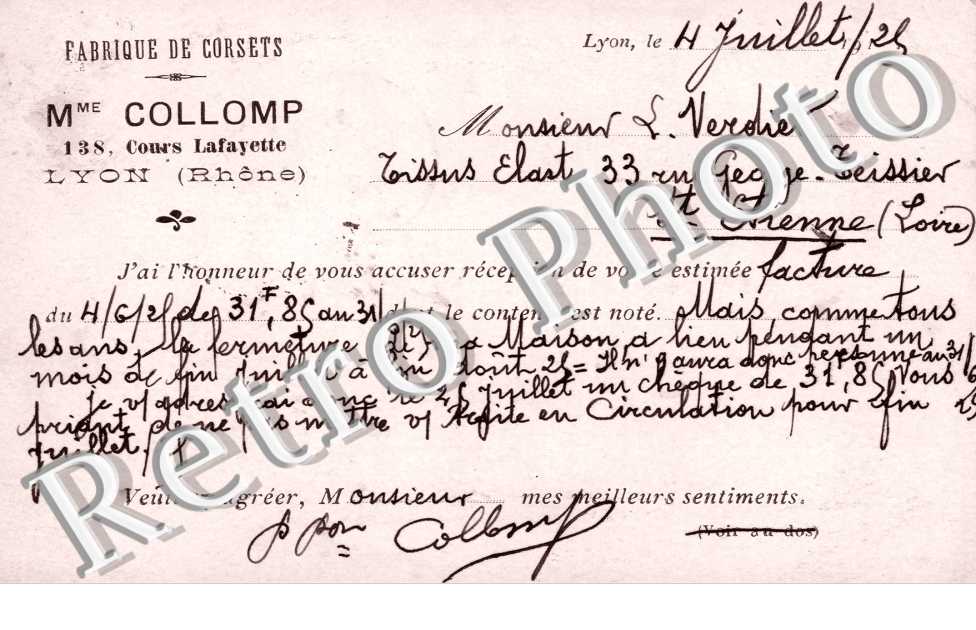 FABRIQUE DE CORSETS
Lyon, le 4 Juillet / 25
MME COLLOMP
138, Cours Lafayette
LYON (Rhône)
Monsieur L. Verdier
Tissus Elast 33 ru George-Teissier
St Etienne (Loire)
J'ai l'honneur de vous accuser réception de votre estimée facture
du 4/6/25 de 31F,85 au 31/ dont le contenu est noté. Mais, comme tous
les ans, la fermeture de la Maison a lieu pendant un
mois de fin Juillet à fin Août 25 = Il n'y aura donc personne au 31/
Je v/ adresserai donc le 25 Juillet un chèque de 31,85 Vous
priant de ne pas mettre v/ traite en Circulation pour fin
Juillet.
Veuillez agréer, Monsieur mes meilleurs sentiments.
p pon Collomp
(Voir au dos)
Retro Photo